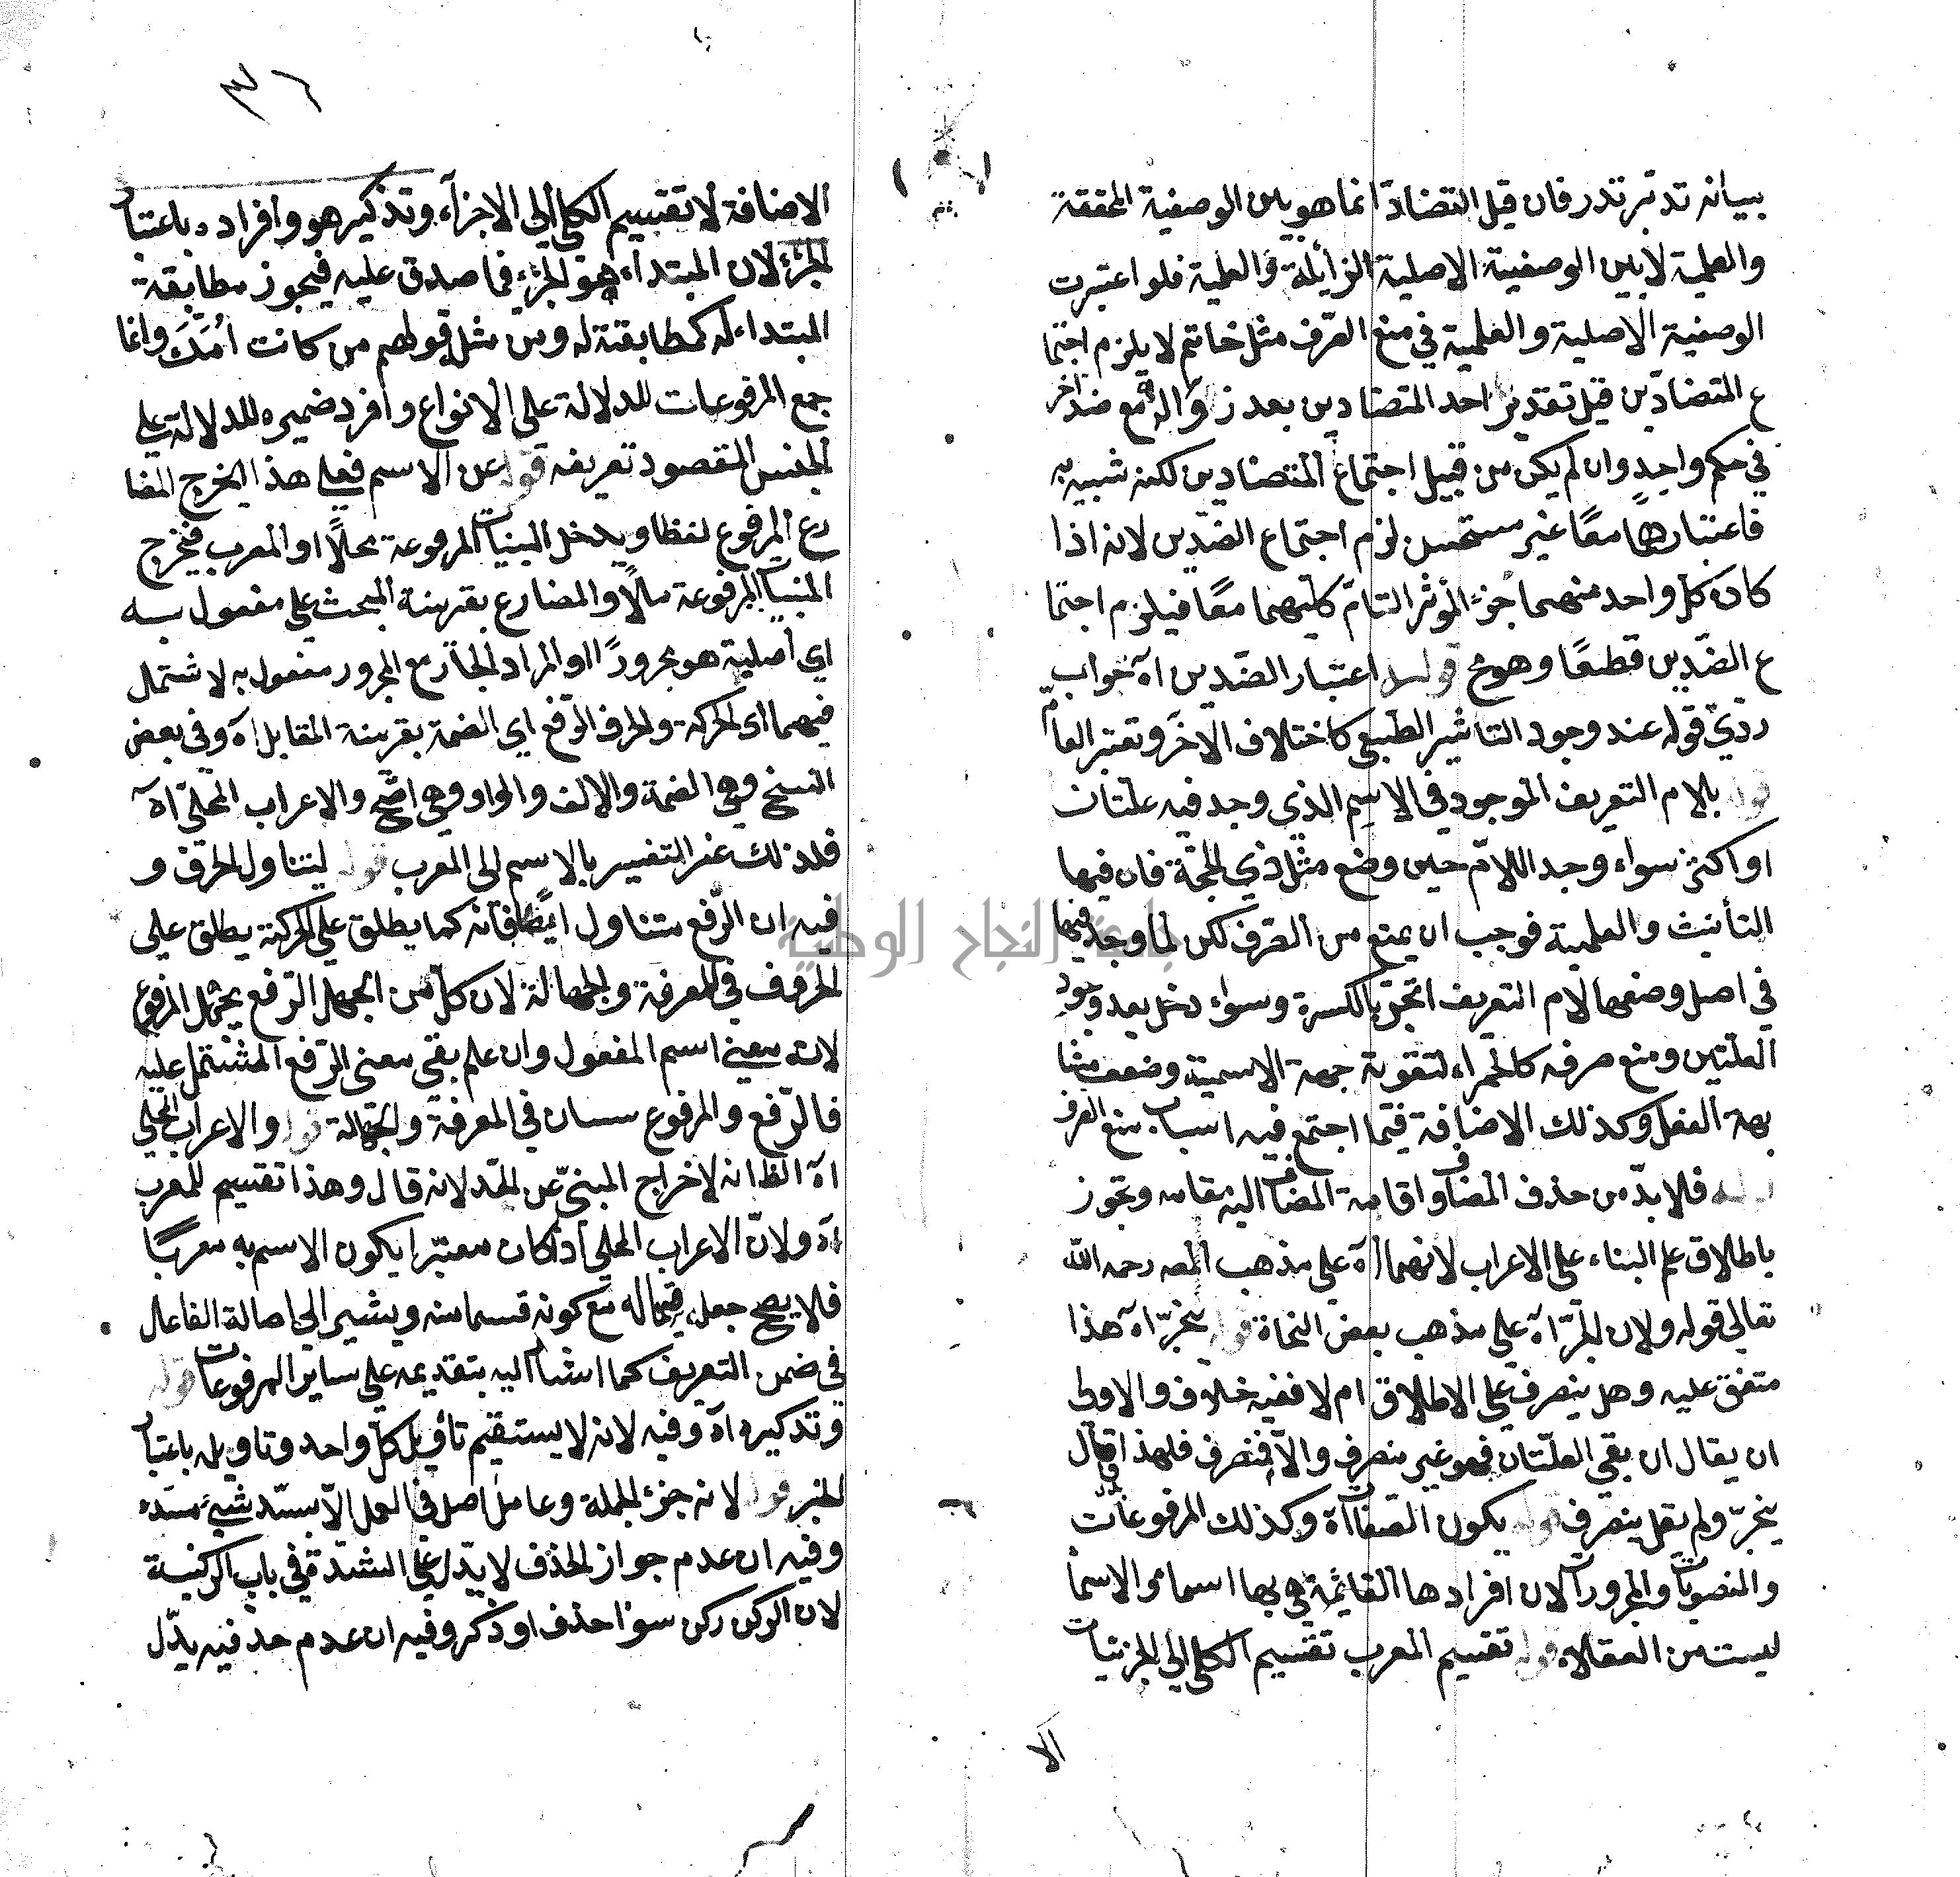 بيانه تدبر تدر فان قيل التضاد انما هو بين الوصفية المحققة
والعلمية لا بين الوصفية الاصلية الزايلة والعلمية فلو اعتبرت
الوصفية الاصلية والعلمية في منع الصرف مثل خاتم لا يلزم اجتما
ع المتضادين قيل تقدير احد المتضادين بعد زواله مع ضد آخر
في حكم واحد وان لم يكن من قبيل اجتماع المتضادين لكنه شبيه به
فاعتبارهما معًا غير مستحسن لزم اجتماع الضدين لانه اذا
كان كل واحد منهما جزء المؤثر التام كليهما معًا فيلزم اجتما
ع الضدين قطعًا وهو مح قوله اعتبار الضدين اه جواب
قوله عند وجود التاثير الطبيعي كاختلاف الاخر وتعتبر
قوله بلام التعريف الموجود في الاسم الذي وجد فيه علتان
او اكثر سواء وجد اللام حين وضع مثل ذي الحجة فان فيها
التأنيث والعلمية فوجب ان يمنع من الصرف لكن لما وجد فيها
في اصل وضعها لام التعريف انجر بالكسرة وسواء دخل بعد وجود
العلتين ومنع صرفه كالحمراء لتقوية جهة الاسمية وضعف مشا
بهة الفعل وكذلك الاضافة فيما اجتمع فيه اسباب منع الصرف
قوله فلا بد من حذف المضاف واقامة المضاف اليه مقامه وتجوز
باطلاق علم البناء على الاعراب لانهما اه على مذهب المصه رحمه الله
تعالى قوله ولان الجر اه على مذهب بعض النحاة قوله ينجر اه هذا
متفق عليه وهل ينصرف على الاطلاق ام لا ففيه خلاف والاولى
ان يقال ان بقي العلتان فهو غير منصرف والا فمنصرف فلهذا قال
ينجر ولم يقل ينصرف قوله يكون الصفات اه وكذلك المرفوعات
والمنصوبات والمجرورات لان افرادها القايمة هي بها اسما والاسما
ليست من العقلاء قوله تقسيم المعرب تقسيم الكلي الي الجزئيات
الا
٣٦
الاضافة لا تقسيم الكل الي الاجزاء وتذكير هو وافراده باعتبار
الجزء لان المبتداء هو الجزء فما صدق عليه فيجوز مطابقة
المبتداء له كمطابقته له ومن مثل قولهم من كانت امّك وانما
جمع المرفوعات للدلالة على الانواع وافرد ضميره للدلالة على
الجنس المقصود تعريفه قوله عن الاسم فعلى هذا يخرج المضا
رع المرفوع لفظا ويدخل المبنيات المرفوعة محلًا او المعرب فيخرج
المبنيات المرفوعة محلا والمضارع بقرينة المبحث على مفعول به
اي اصلية هو مجرورًا او المراد الجار مع المجرور مفعول به لاشتمل
فيهما اي الحركة والحرف الرفع اي الضمة بقرينة المقابل اه وفي بعض
النسخ وهي الضمة والالف والواو وهي اصح والاعراب المحلي اه
فلذلك غير التفسير بالاسم الى المعرب قوله ليتناول الحرف و
فيه ان الرفع متناول ايضًا فانه كما يطلق على الحركة يطلق على
الحروف في المعرفة والجهالة لان كل من الجهل الرفع يجهل المرفوع
لانه بمعنى اسم المفعول وان علم بقي معنى الرفع المشتمل عليه
فالرفع والمرفوع سيان في المعرفة والجهالة قوله والاعراب المحلي
اه الظ انه لاخراج المبني عن الحد لانه قال وهذا تقسيم للمعرب
اه ولان الاعراب المحلي اذا كان معتبرا يكون الاسم به معربًا
فلا يصح جعله قيما له مع كونه قسما منه ويشير الى اصالة الفاعل
في ضمن التعريف كما اشار اليه بتقديمه على ساير المرفوعات قوله
وتذكيره اه وفيه لانه لا يستقيم تأويل كل واحد وتاويله باعتبار
الخبر قوله لانه جزء الجملة وعامل اصل في العمل الا بسد شيئ مسده
وفيه ان عدم جواز الحذف لا يدل على الشدة في باب الركنية
لان الركن ركن سواء حذف او ذكر وفيه ان عدم حذفيه يدل
جامعة النجاح الوطنية